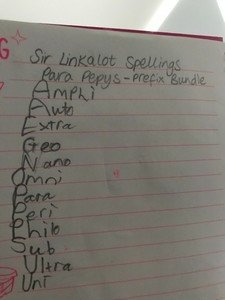 G
Sir Linkalot Spellings
Para Pepys - Prefix Bundle
Amphi
Auto
Extra
Geo
Nano
Omni
Para
Peri
Philo
Sub
Ultra
Uni